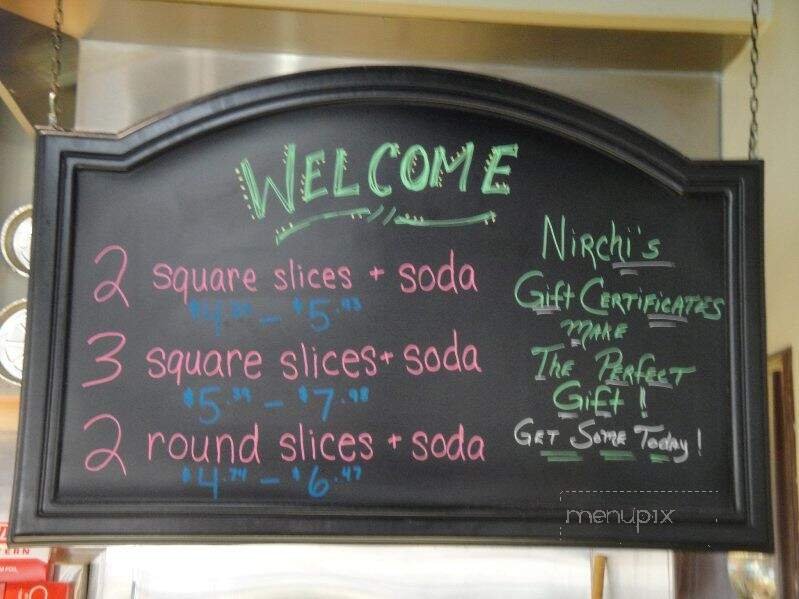 WELCOME
2 square slices + soda
$5.93
3 square slices + soda
$5.39 - $7.98
2 round slices + soda
$4.74 - $6.47
Nirchi's
Gift Certificates
Make
The Perfect
Gift!
Get Some Today!
menupix